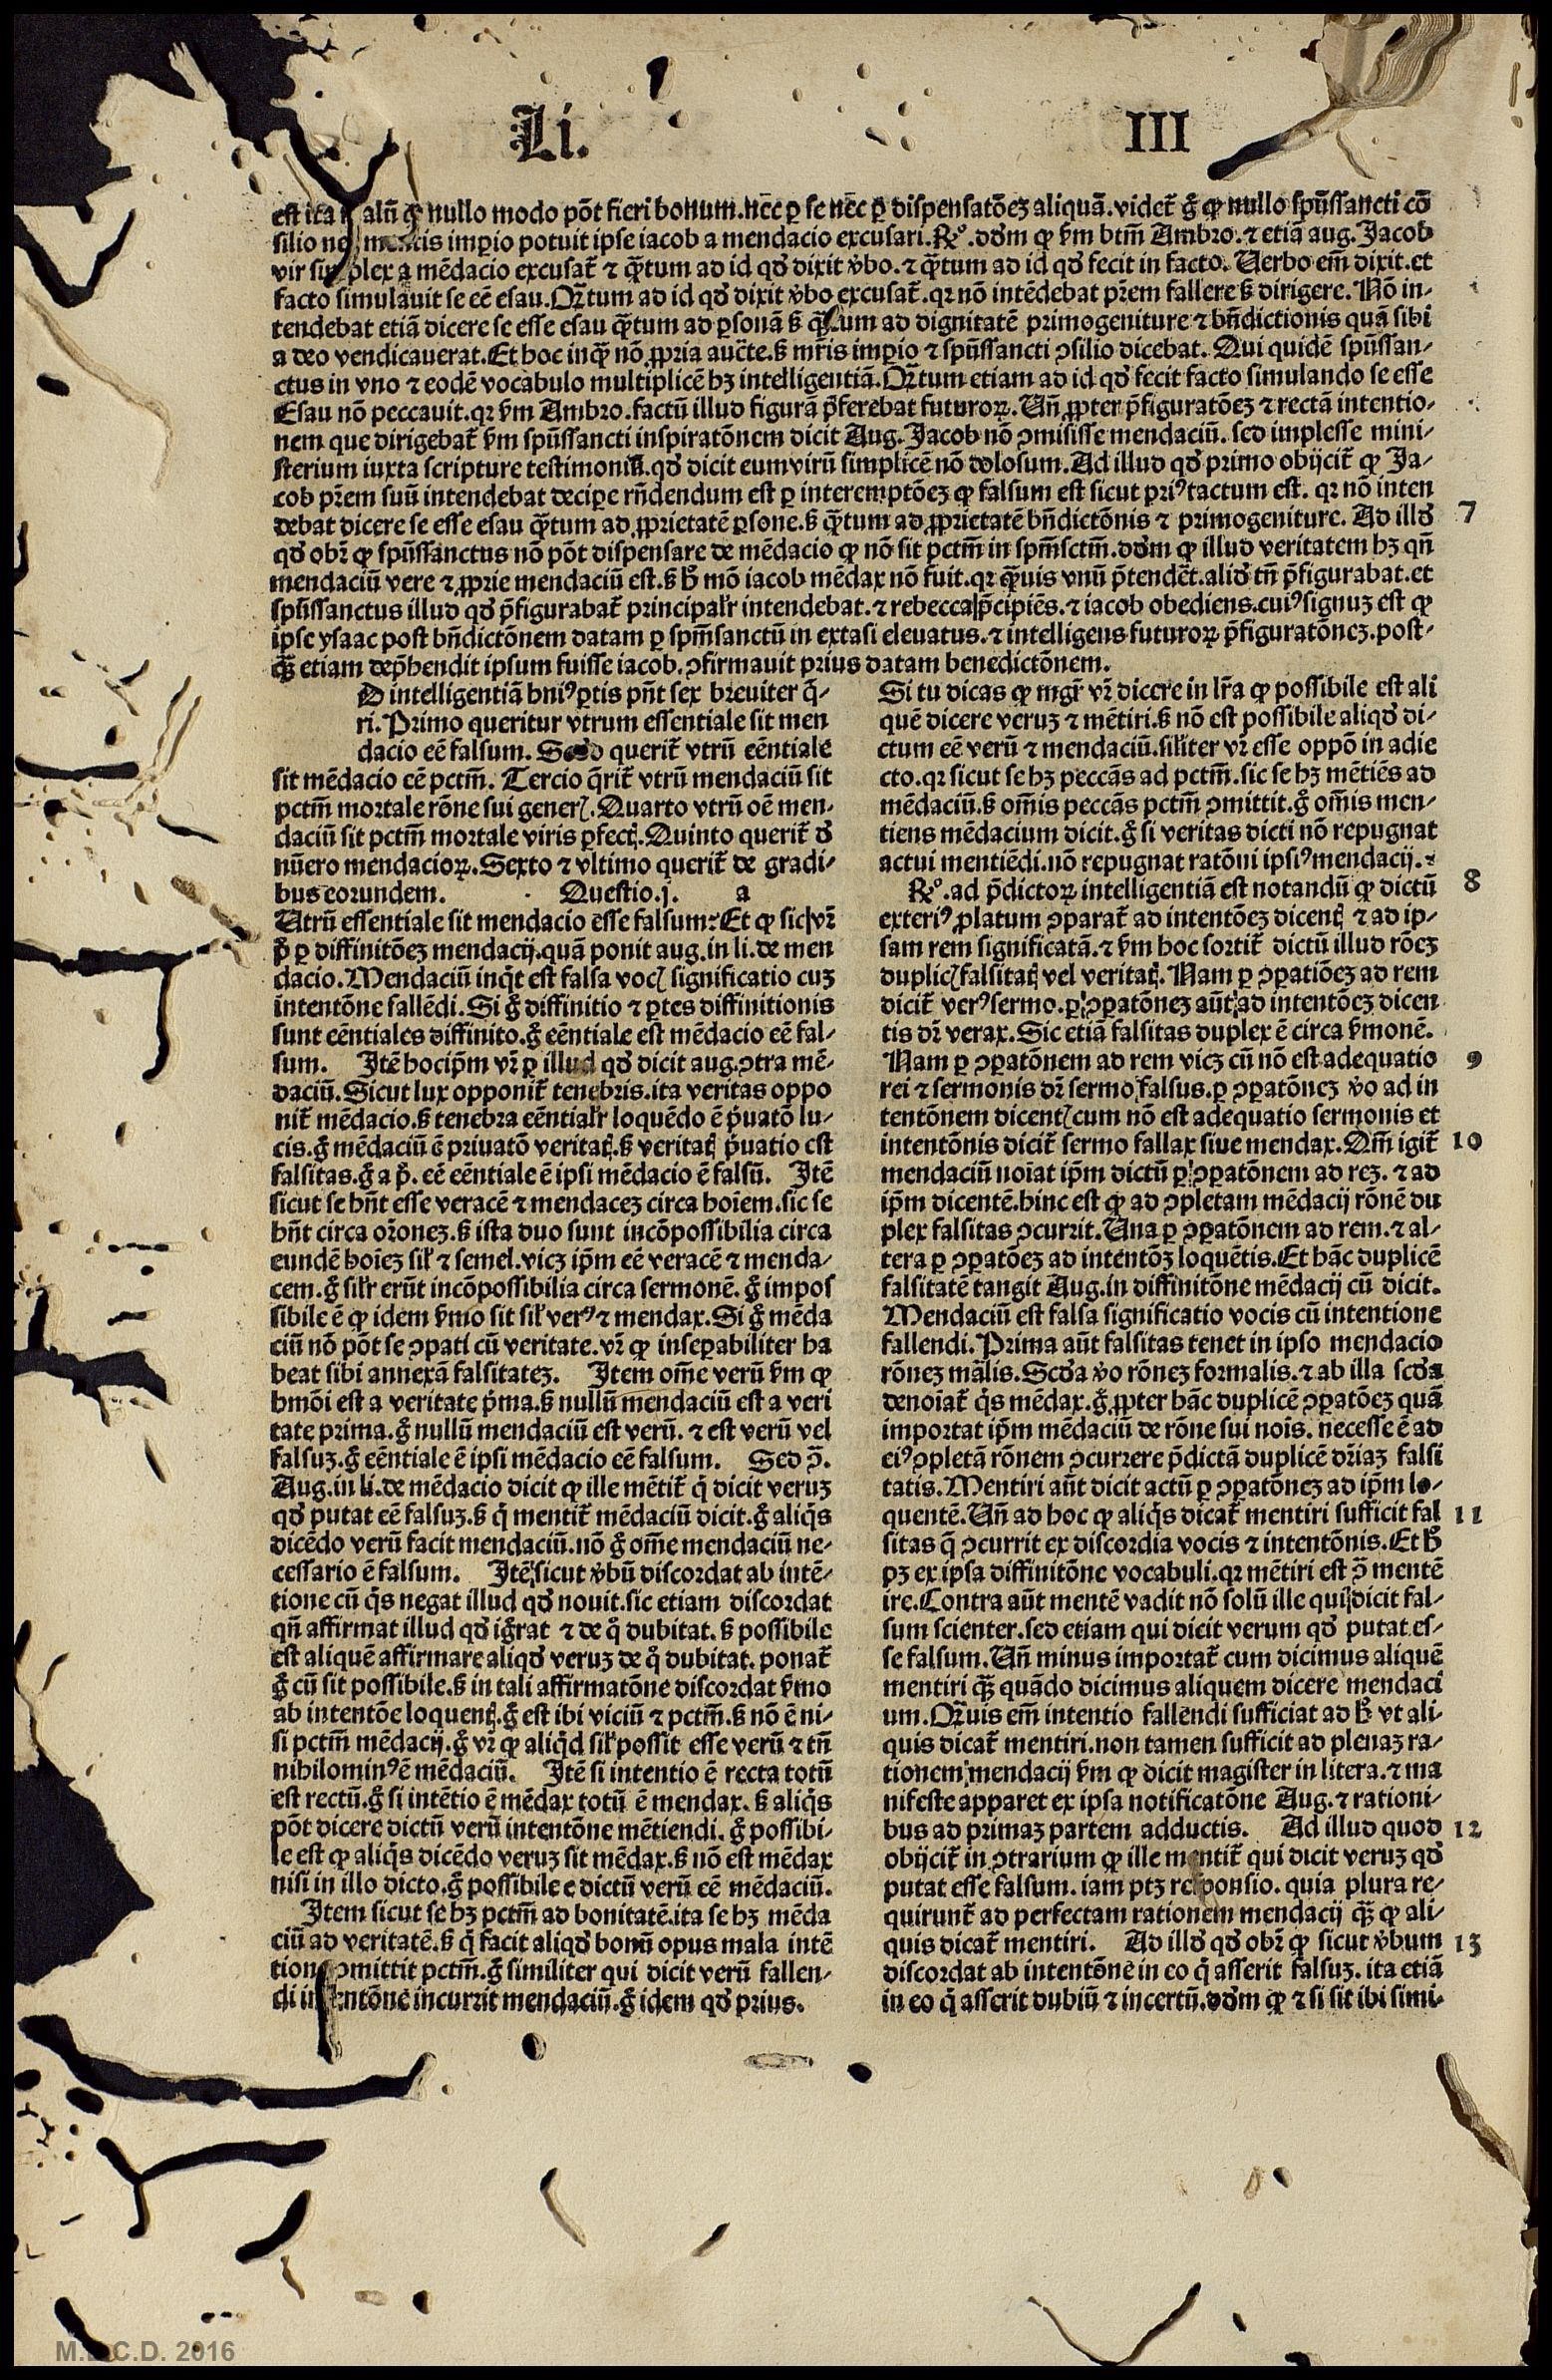 Li. III
est ita malū ꝙ nullo modo pōt fieri bonum.nec ꝑ se nec ꝑ dispensatōeꝫ aliquā.videt̄ ḡ ꝙ nullo spūssancti cō
silio nec matris imꝑio potuit ipse iacob a mendacio excusari.R̄°.dōm ꝙ ẜm btm̄ Ambro.⁊ etiā aug.Jacob
vir simplex a mēdacio excusat̄ ⁊ q̄ꝫtum ad id qđ dixit v̄bo.⁊ q̄ꝫtum ad id qđ fecit in facto. Uerbo em̄ dixit.et
facto simulauit se eē esau.Qꝫtum ad id qđ dixit v̄bo excusat̄.qr nō intēdebat pr̄em fallere ẜ dirigere. Nō in-
tendebat etiā dicere se esse esau q̄ꝫtum ad ꝑsonā ẜ q̄ꝫtum ad dignitatē primogeniture ⁊ bn̄dictionis quā sibi
a deo vendicauerat.Et hoc inq̄ꝫ nō ꝓpria auc̄te.ẜ mr̄is imꝑio ⁊ spūssancti ↄsilio dicebat. Qui quidē spūssan-
ctus in vno ⁊ eodē vocabulo multiplicē hꝫ intelligentiā.Qꝫtum etiam ad id qđ fecit facto simulando se esse
Esau nō peccauit.qr ẜm Ambro.factū illud figurā p̄ferebat futuroꝝ. Un̄ ꝓpter p̄figuratōeꝫ ⁊ rectā intentio-
nem que dirigebat̄ ẜm spūssancti inspiratōnem dicit Aug. Jacob nō ↄmisisse mendaciū. sed implesse mini-
sterium iuxta scripture testimoniū.qđ dicit eum virū simplicē nō dolosum. Ad illud qđ primo obijcit̄ ꝙ Ja-
cob pr̄em suū intendebat deciꝑe rn̄dendum est ꝑ interemptōeꝫ ꝙ falsum est sicut priꝰ tactum est. qr nō inten
debat dicere se esse esau q̄ꝫtum ad ꝓprietatē ꝑsone.ẜ q̄ꝫtum ad ꝓprietatē bn̄dictōnis ⁊ primogeniture. Ad illđ 7
qđ obr̄ ꝙ spūssanctus nō pōt dispensare de mēdacio ꝙ nō sit pctm̄ in spm̄sctm̄.dōm ꝙ illud veritatem hꝫ qn̄
mendaciū vere ⁊ ꝓprie mendaciū est.ẜ h̄ mō iacob mēdax nō fuit.qr q̄ꝫuis vnū p̄tendēt.aliđ tn̄ p̄figurabat.et
spūssanctus illud qđ p̄figurabat̄ principalr̄ intendebat.⁊ rebecca p̄cipiēs.⁊ iacob obediens.cuiꝰ signuꝫ est ꝙ
ipse ysaac post bn̄dictōnem datam ꝑ spm̄sanctū in extasi eleuatus.⁊ intelligens futuroꝝ p̄figuratōneꝫ.post-
q̄ꝫ etiam dep̄hendit ipsum fuisse iacob.ↄfirmauit prius datam benedictōnem.
D intelligentiā hniꝰ ꝑtis pn̄t sex breuiter q̄-
ri. Primo queritur vtrum essentiale sit men
dacio eē falsum. Scđo querit̄ vtrū eēntiale
sit mēdacio eē pctm̄. Tercio q̄rit̄ vtrū mendaciū sit
pctm̄ mortale rōne sui generꝭ. Quarto vtrū oē men-
daciū sit pctm̄ mortale viris ꝑfectꝭ. Quinto querit̄ đ
nūero mendacioꝝ. Sexto ⁊ vltimo querit̄ de gradi-
bus eorundem. Questio.j. a
Utrū essentiale sit mendacio esse falsum: Et ꝙ sic vr̄
p̄ ꝑ diffinitōeꝫ mendacij.quā ponit aug.in li.de men
dacio. Mendaciū inq̄t est falsa vocꝭ significatio cuꝫ
intentōne fallēdi. Si ḡ diffinitio ⁊ ꝑtes diffinitionis
sunt eēntiales diffinito.ḡ eēntiale est mēdacio eē fal-
sum. Itē hoc ip̄m vr̄ ꝑ illud qđ dicit aug.ↄtra mē-
daciū. Sicut lux opponit̄ tenebris.ita veritas oppo
nit̄ mēdacio.ẜ tenebra eēntialr̄ loquēdo ē p̄uatō lu-
cis.ḡ mēdaciū ē priuatō veritatꝭ.ẜ veritatꝭ p̄uatio est
falsitas.ḡ a p̄. eē eēntiale ē ipsi mēdacio ē falsū. Itē
sicut se hn̄t esse veracē ⁊ mendaceꝫ circa hoīem.sic se
hn̄t circa or̄oneꝫ.ẜ ista duo sunt incōpossibilia circa
eundē hoīeꝫ sil̄ ⁊ semel.vicꝫ ip̄m eē veracē ⁊ menda-
cem.ḡ silr̄ erūt incōpossibilia circa sermonē. ḡ impos
sibile ē ꝙ idem ẜmo sit sil̄ verꝰ ⁊ mendax. Si ḡ mēda
ciū nō pōt se ↄpati cū veritate.vr̄ ꝙ inseꝑabiliter ha
beat sibi annexā falsitateꝫ. Item om̄e verū ẜm ꝙ
hmōi est a veritate p̄ma.ẜ nullū mendaciū est a veri
tate prima.ḡ nullū mendaciū est verū. ⁊ est verū vel
falsuꝫ.ḡ eēntiale ē ipsi mēdacio eē falsum. Sed ↄ̄.
Aug.in li.de mēdacio dicit ꝙ ille mētit̄ q̄ dicit veruꝫ
qđ putat eē falsuꝫ.ẜ q̄ mentit̄ mēdaciū dicit.ḡ aliq̄s
dicēdo verū facit mendaciū.nō ḡ om̄e mendaciū ne-
cessario ē falsum. Itē sicut v̄bū discordat ab intē-
tione cū q̄s negat illud qđ nouit.sic etiam discordat
qn̄ affirmat illud qđ iḡrat ⁊ de q̄ dubitat. ẜ possibile
est aliquē affirmare aliqđ veruꝫ de q̄ dubitat. ponat̄
ḡ cū sit possibile.ẜ in tali affirmatōne discordat ẜmo
ab intentōe loquentꝭ.ḡ est ibi viciū ⁊ pctm̄.ẜ nō ē ni-
si pctm̄ mēdacij.ḡ vr̄ ꝙ aliq̄d sil̄ possit esse verū ⁊ tn̄
nihilominꝰ ē mēdaciū. Itē si intentio ē recta totū
est rectū.ḡ si intētio ē mēdax totū ē mendax. ẜ aliq̄s
pōt dicere dictū verū intentōne mētiendi. ḡ possibi-
le est ꝙ aliq̄s dicēdo veruꝫ sit mēdax.ẜ nō est mēdax
nisi in illo dicto.ḡ possibile e dictū verū eē mēdaciū.
Item sicut se hꝫ pctm̄ ad bonitatē.ita se hꝫ mēda
ciū ad veritatē.ẜ q̄ facit aliqđ bonū opus mala intē
tione ↄmittit pctm̄.ḡ similiter qui dicit verū fallen-
di intentōne incurrit mendaciū.ḡ idem qđ prius.
Si tu dicas ꝙ mgr̄ vr̄ dicere in lr̄a ꝙ possibile est ali
quē dicere veruꝫ ⁊ mētiri.ẜ nō est possibile aliqđ di-
ctum eē verū ⁊ mendaciū.siliter vr̄ esse oppō in adie
cto.qr sicut se hꝫ peccās ad pctm̄.sic se hꝫ mētiēs ad
mēdaciū.ẜ om̄is peccās pctm̄ ↄmittit.ḡ om̄is men-
tiens mēdacium dicit.ḡ si veritas dicti nō repugnat
actui mentiēdi.nō repugnat ratōni ipsiꝰ mendacij.
R̄°.ad p̄dictoꝝ intelligentiā est notandū ꝙ dictū 8
exteriꝰ ꝓlatum ↄparat̄ ad intentōeꝫ dicentꝭ ⁊ ad ip-
sam rem significatā.⁊ ẜm hoc sortit̄ dictū illud rōeꝫ
duplicꝭ falsitatꝭ vel veritatꝭ. Nam ꝑ ↄꝑatiōeꝫ ad rem
dicit̄ verꝰ sermo.ꝑ ↄꝑatōneꝫ aūt ad intentōeꝫ dicen
tis dr̄ verax. Sic etiā falsitas duplex ē circa ẜmonē.
Nam ꝑ ↄꝑatōnem ad rem vicꝫ cū nō est adequatio 9
rei ⁊ sermonis dr̄ sermo falsus.ꝑ ↄꝑatōneꝫ v̄o ad in
tentōnem dicentꝭ cum nō est adequatio sermonis et
intentōnis dicit̄ sermo fallax siue mendax. Qm̄ igit̄ 10
mendaciū noīat ip̄m dictū ꝑ ↄꝑatōnem ad reꝫ. ⁊ ad
ip̄m dicentē.hinc est ꝙ ad ↄpletam mēdacij rōnē du
plex falsitas ↄcurrit. Una ꝑ ↄꝑatōnem ad rem.⁊ al-
tera ꝑ ↄꝑatōeꝫ ad intentōꝫ loquētis. Et hāc duplicē
falsitatē tangit Aug.in diffinitōne mēdacij cū dicit.
Mendaciū est falsa significatio vocis cū intentione
fallendi. Prima aūt falsitas tenet in ipso mendacio
rōneꝫ māl̄is. Scđa v̄o rōneꝫ formalis.⁊ ab illa scđa
denoīat̄ q̄s mēdax.ḡ ꝓpter hāc duplicē ↄꝑatōeꝫ quā
importat ip̄m mēdaciū de rōne sui noīs. necesse ē ad
eiꝰ ↄpletā rōnem ↄcurrere p̄dictā duplicē dr̄iaꝫ falsi
tatis. Mentiri aūt dicit actū ꝑ ↄꝑatōneꝫ ad ip̄m lo-
quentē. Un̄ ad hoc ꝙ aliq̄s dicat̄ mentiri sufficit fal 11
sitas q̄ ↄcurrit ex discordia vocis ⁊ intentōnis. Et h̄
pꝫ ex ipsa diffinitōne vocabuli.qr mētiri est ↄ̄ mentē
ire. Contra aūt mentē vadit nō solū ille qui dicit fal-
sum scienter.sed etiam qui dicit verum qđ putat es-
se falsum. Un̄ minus importat̄ cum dicimus aliquē
mentiri q̄ꝫ quādo dicimus aliquem dicere mendaci
um. Qꝫuis em̄ intentio fallendi sufficiat ad h̄ vt ali-
quis dicat̄ mentiri.non tamen sufficit ad plenaꝫ ra-
tionem mendacij ẜm ꝙ dicit magister in litera.⁊ ma
nifeste apparet ex ipsa notificatōne Aug.⁊ rationi-
bus ad primaꝫ partem adductis. Ad illud quod 12
obijcit̄ in ↄtrarium ꝙ ille mentit̄ qui dicit veruꝫ qđ
putat esse falsum. iam ptꝫ responsio. quia plura re-
quirunt̄ ad perfectam rationem mendacij q̄ꝫ ꝙ ali-
quis dicat̄ mentiri. Ad illđ qđ obr̄ ꝙ sicut v̄bum 13
discordat ab intentōne in eo q̄ asserit falsuꝫ. ita etiā
in eo q̄ asserit dubiū ⁊ incertū.dōm ꝙ ⁊ si sit ibi simi-
M.E.C.D. 2016